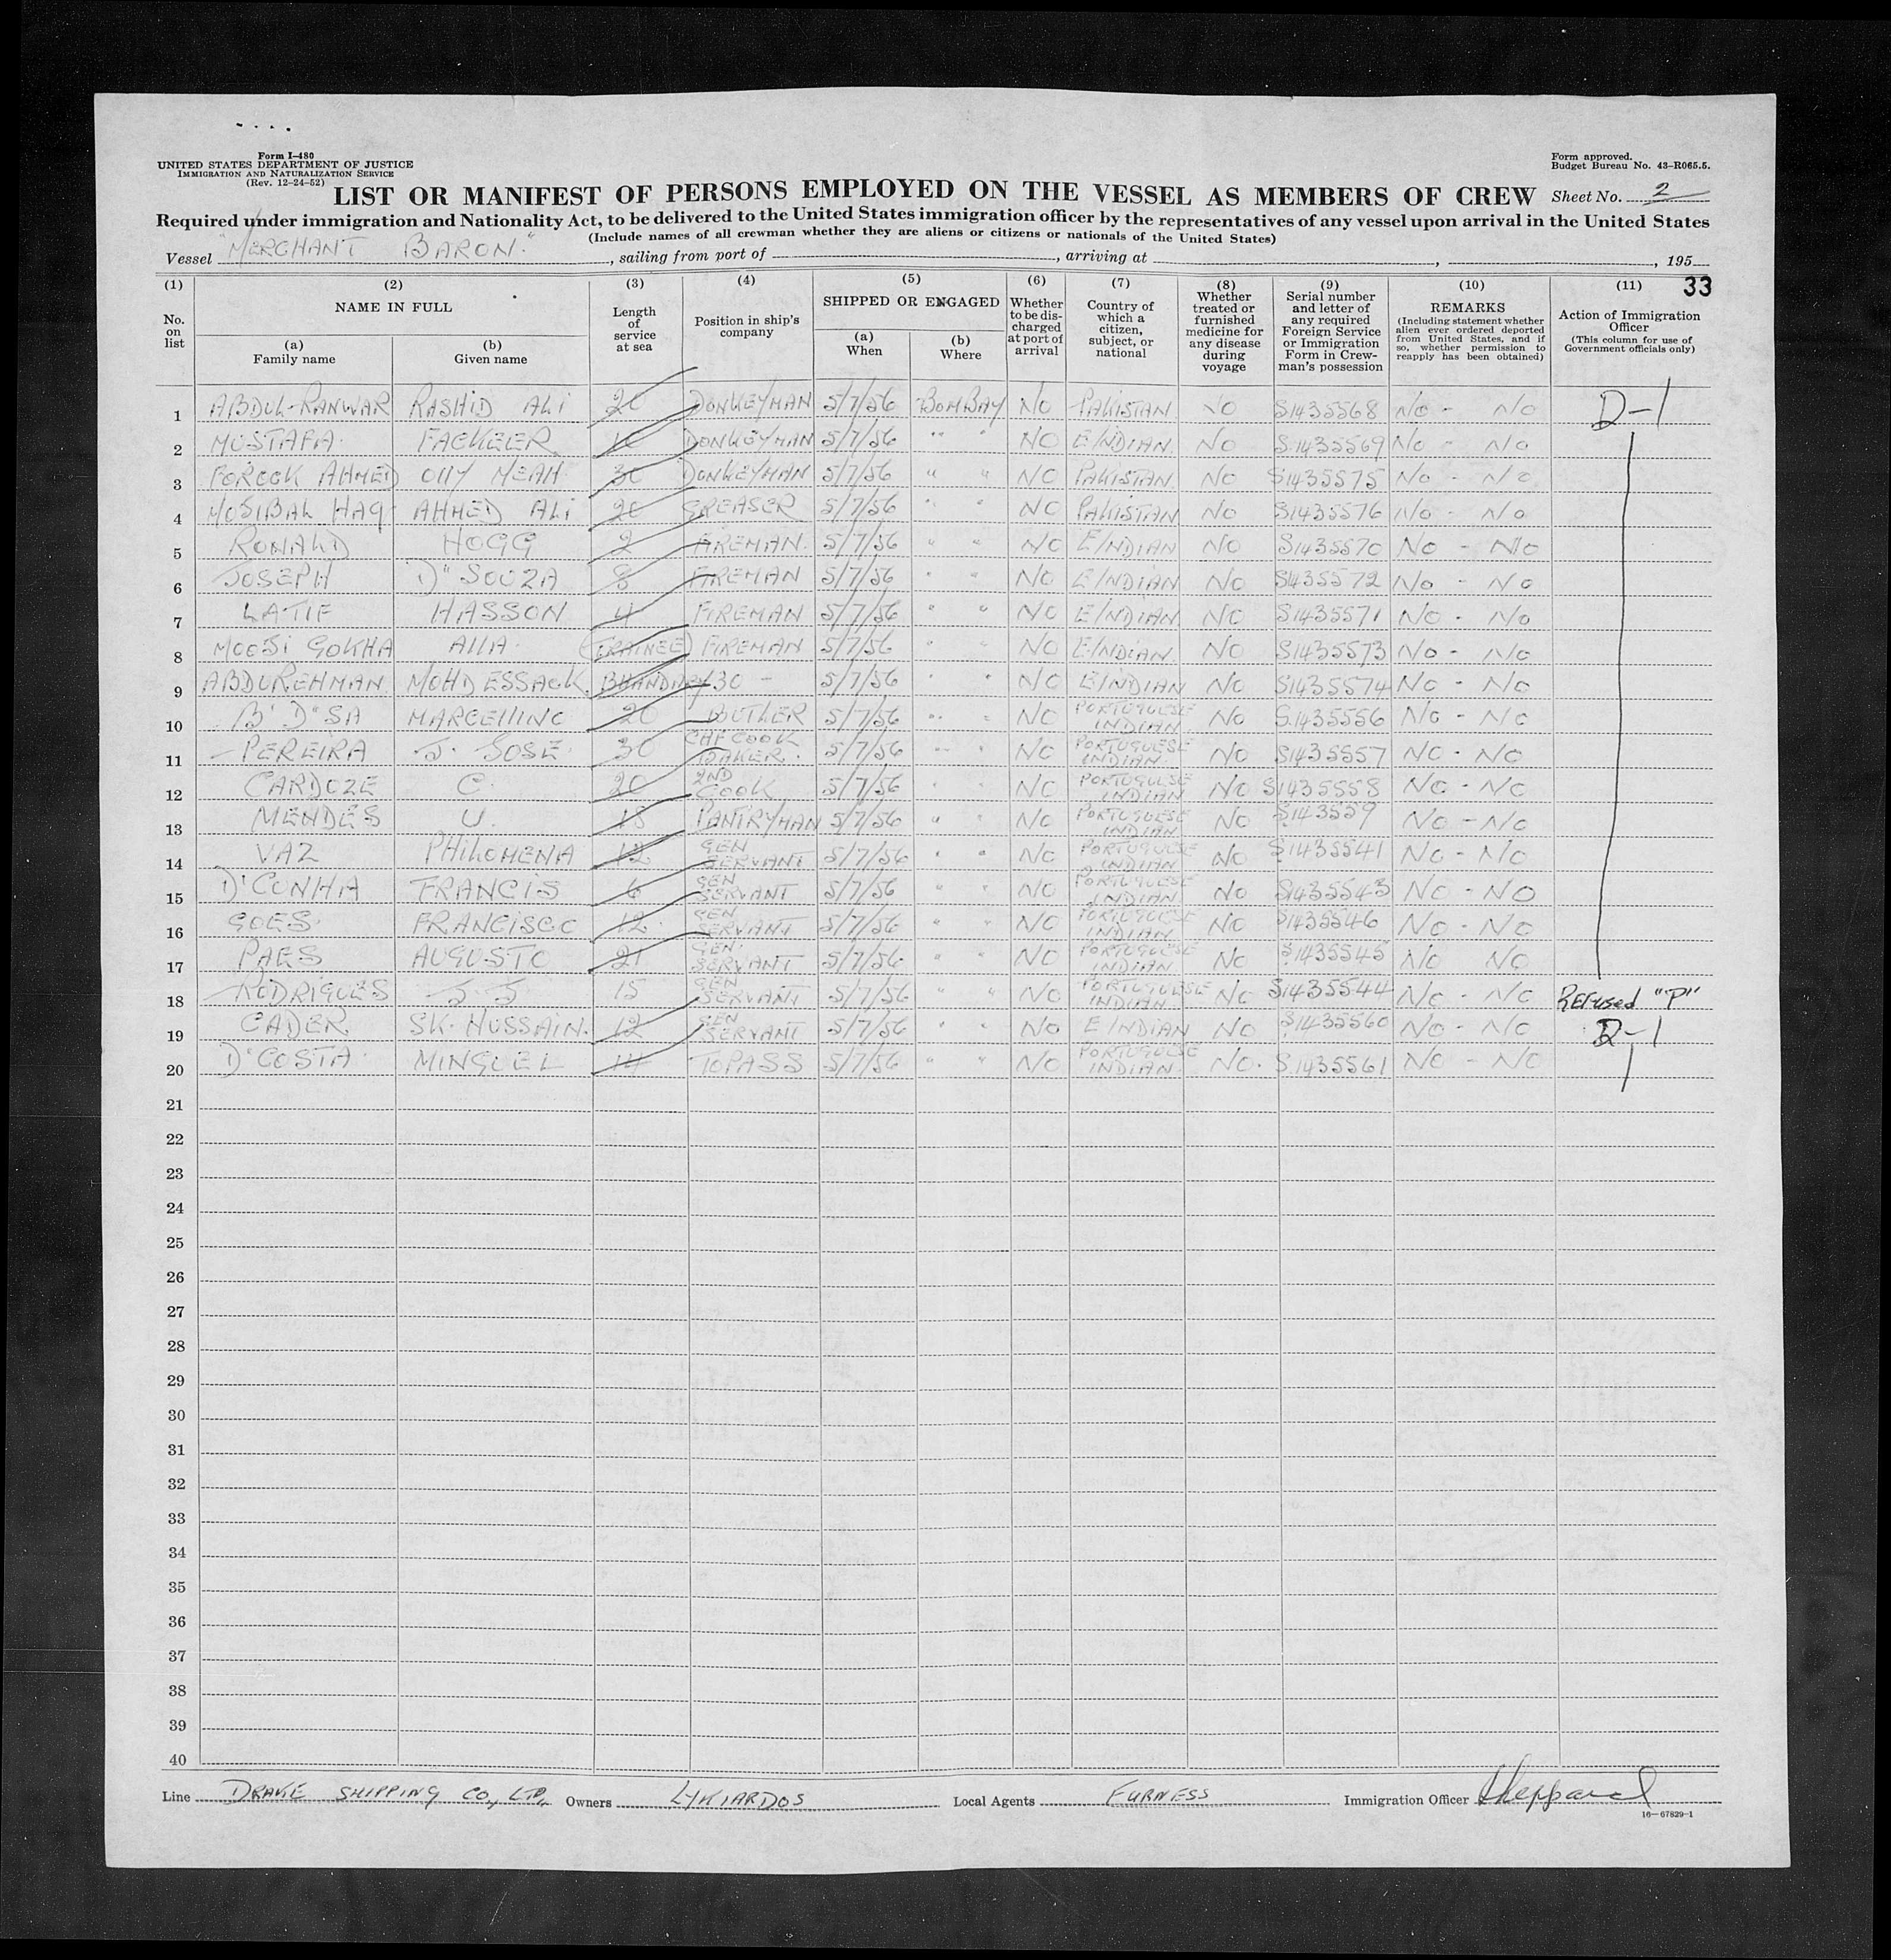 Form I-480
UNITED STATES DEPARTMENT OF JUSTICE
IMMIGRATION AND NATURALIZATION SERVICE
(Rev. 12-24-52)
Form approved.
Budget Bureau No. 43-R065.5.
LIST OR MANIFEST OF PERSONS EMPLOYED ON THE VESSEL AS MEMBERS OF CREW
Sheet No. 2
Required under immigration and Nationality Act, to be delivered to the United States immigration officer by the representatives of any vessel upon arrival in the United States
(Include names of all crewman whether they are aliens or citizens or nationals of the United States)
Vessel "MERCHANT BARON", sailing from port of , arriving at , , 195
33
(1) No. on list
(2) NAME IN FULL (a) Family name (b) Given name
(3) Length of service at sea
(4) Position in ship's company
(5) SHIPPED OR ENGAGED (a) When (b) Where
(6) Whether to be discharged at port of arrival
(7) Country of which a citizen, subject, or national
(8) Whether treated or furnished medicine for any disease during voyage
(9) Serial number and letter of any required Foreign Service or Immigration Form in Crewman's possession
(10) REMARKS (Including statement whether alien ever ordered deported from United States, and if so, whether permission to reapply has been obtained)
(11) Action of Immigration Officer (This column for use of Government officials only)
1 ABDUL-RANWAR RASHID ALI 20 DONKEYMAN 5/7/56 BOMBAY NO PAKISTAN NO S1435568 NO - NO D-1
2 MUSTAFA FACKEER DONKEYMAN 5/7/56 " " NO E/INDIAN NO S.1435569 NO - NO
3 FOROOK AHMED OLLY MEAH 30 DONKEYMAN 5/7/56 " " NO PAKISTAN NO S1435575 NO - NO
4 MOSIBAL HAQ AHMED ALI 20 GREASER 5/7/56 " " NO PAKISTAN NO S1435576 NO - NO
5 RONALD HOGG 2 FIREMAN 5/7/56 " " NO E/INDIAN NO S1435570 NO - NO
6 JOSEPH D'SOUZA 8 FIREMAN 5/7/56 " " NO E/INDIAN NO S1435572 NO - NO
7 LATIF HASSON 4 FIREMAN 5/7/56 " " NO E/INDIAN NO S1435571 NO - NO
8 MOOSI GOKHA ALLA (TRAINEE) FIREMAN 5/7/56 NO E/INDIAN NO S1435573 NO - NO
9 ABDUREHMAN MOHD ESSACK BHANDARY 30 - 5/7/56 " " NO E/INDIAN NO S1435574 NO - NO
10 B'D'SA MARCELLINO 20 BUTLER 5/7/56 " " NO PORTUGUESE INDIAN NO S.1435556 NO - NO
11 PEREIRA J. JOSE 30 CHF COOK BAKER 5/7/56 " " NO PORTUGUESE INDIAN NO S1435557 NO - NO
12 CARDOZE C. 20 2ND COOK 5/7/56 " " NO PORTUGUESE INDIAN NO S1435558 NO - NO
13 MENDES U. 15 PANTRYMAN 5/7/56 " " NO PORTUGUESE INDIAN NO S143559 NO - NO
14 VAZ PHILOMENA 12 GEN SERVANT 5/7/56 " " NO PORTUGUESE INDIAN NO S1435541 NO - NO
15 D'CUNHA FRANCIS 6 GEN SERVANT 5/7/56 " " NO PORTUGUESE INDIAN NO S1435543 NO - NO
16 GOES FRANCISCO 12 GEN SERVANT 5/7/56 " " NO PORTUGUESE INDIAN NO S1435546 NO - NO
17 PAES AUGUSTO 21 GEN SERVANT 5/7/56 " " NO PORTUGUESE INDIAN NO S1435545 NO NO
18 RODRIGUES J J 15 GEN SERVANT 5/7/56 " " NO PORTUGUESE INDIAN NO S1435544 NO - NO REFUSED "P"
19 CADER SK. HUSSAIN 12 GEN SERVANT 5/7/56 " " NO E/INDIAN NO S1435560 NO - NO D-1
20 D'COSTA MINGUEL 14 TOPASS 5/7/56 " " NO PORTUGUESE INDIAN NO. S.1435561 NO - NO
21
22
23
24
25
26
27
28
29
30
31
32
33
34
35
36
37
38
39
40
Line DRAKE SHIPPING CO., LTD. Owners LYKIARDOS Local Agents FURNESS Immigration Officer Sheppard
16-67829-1